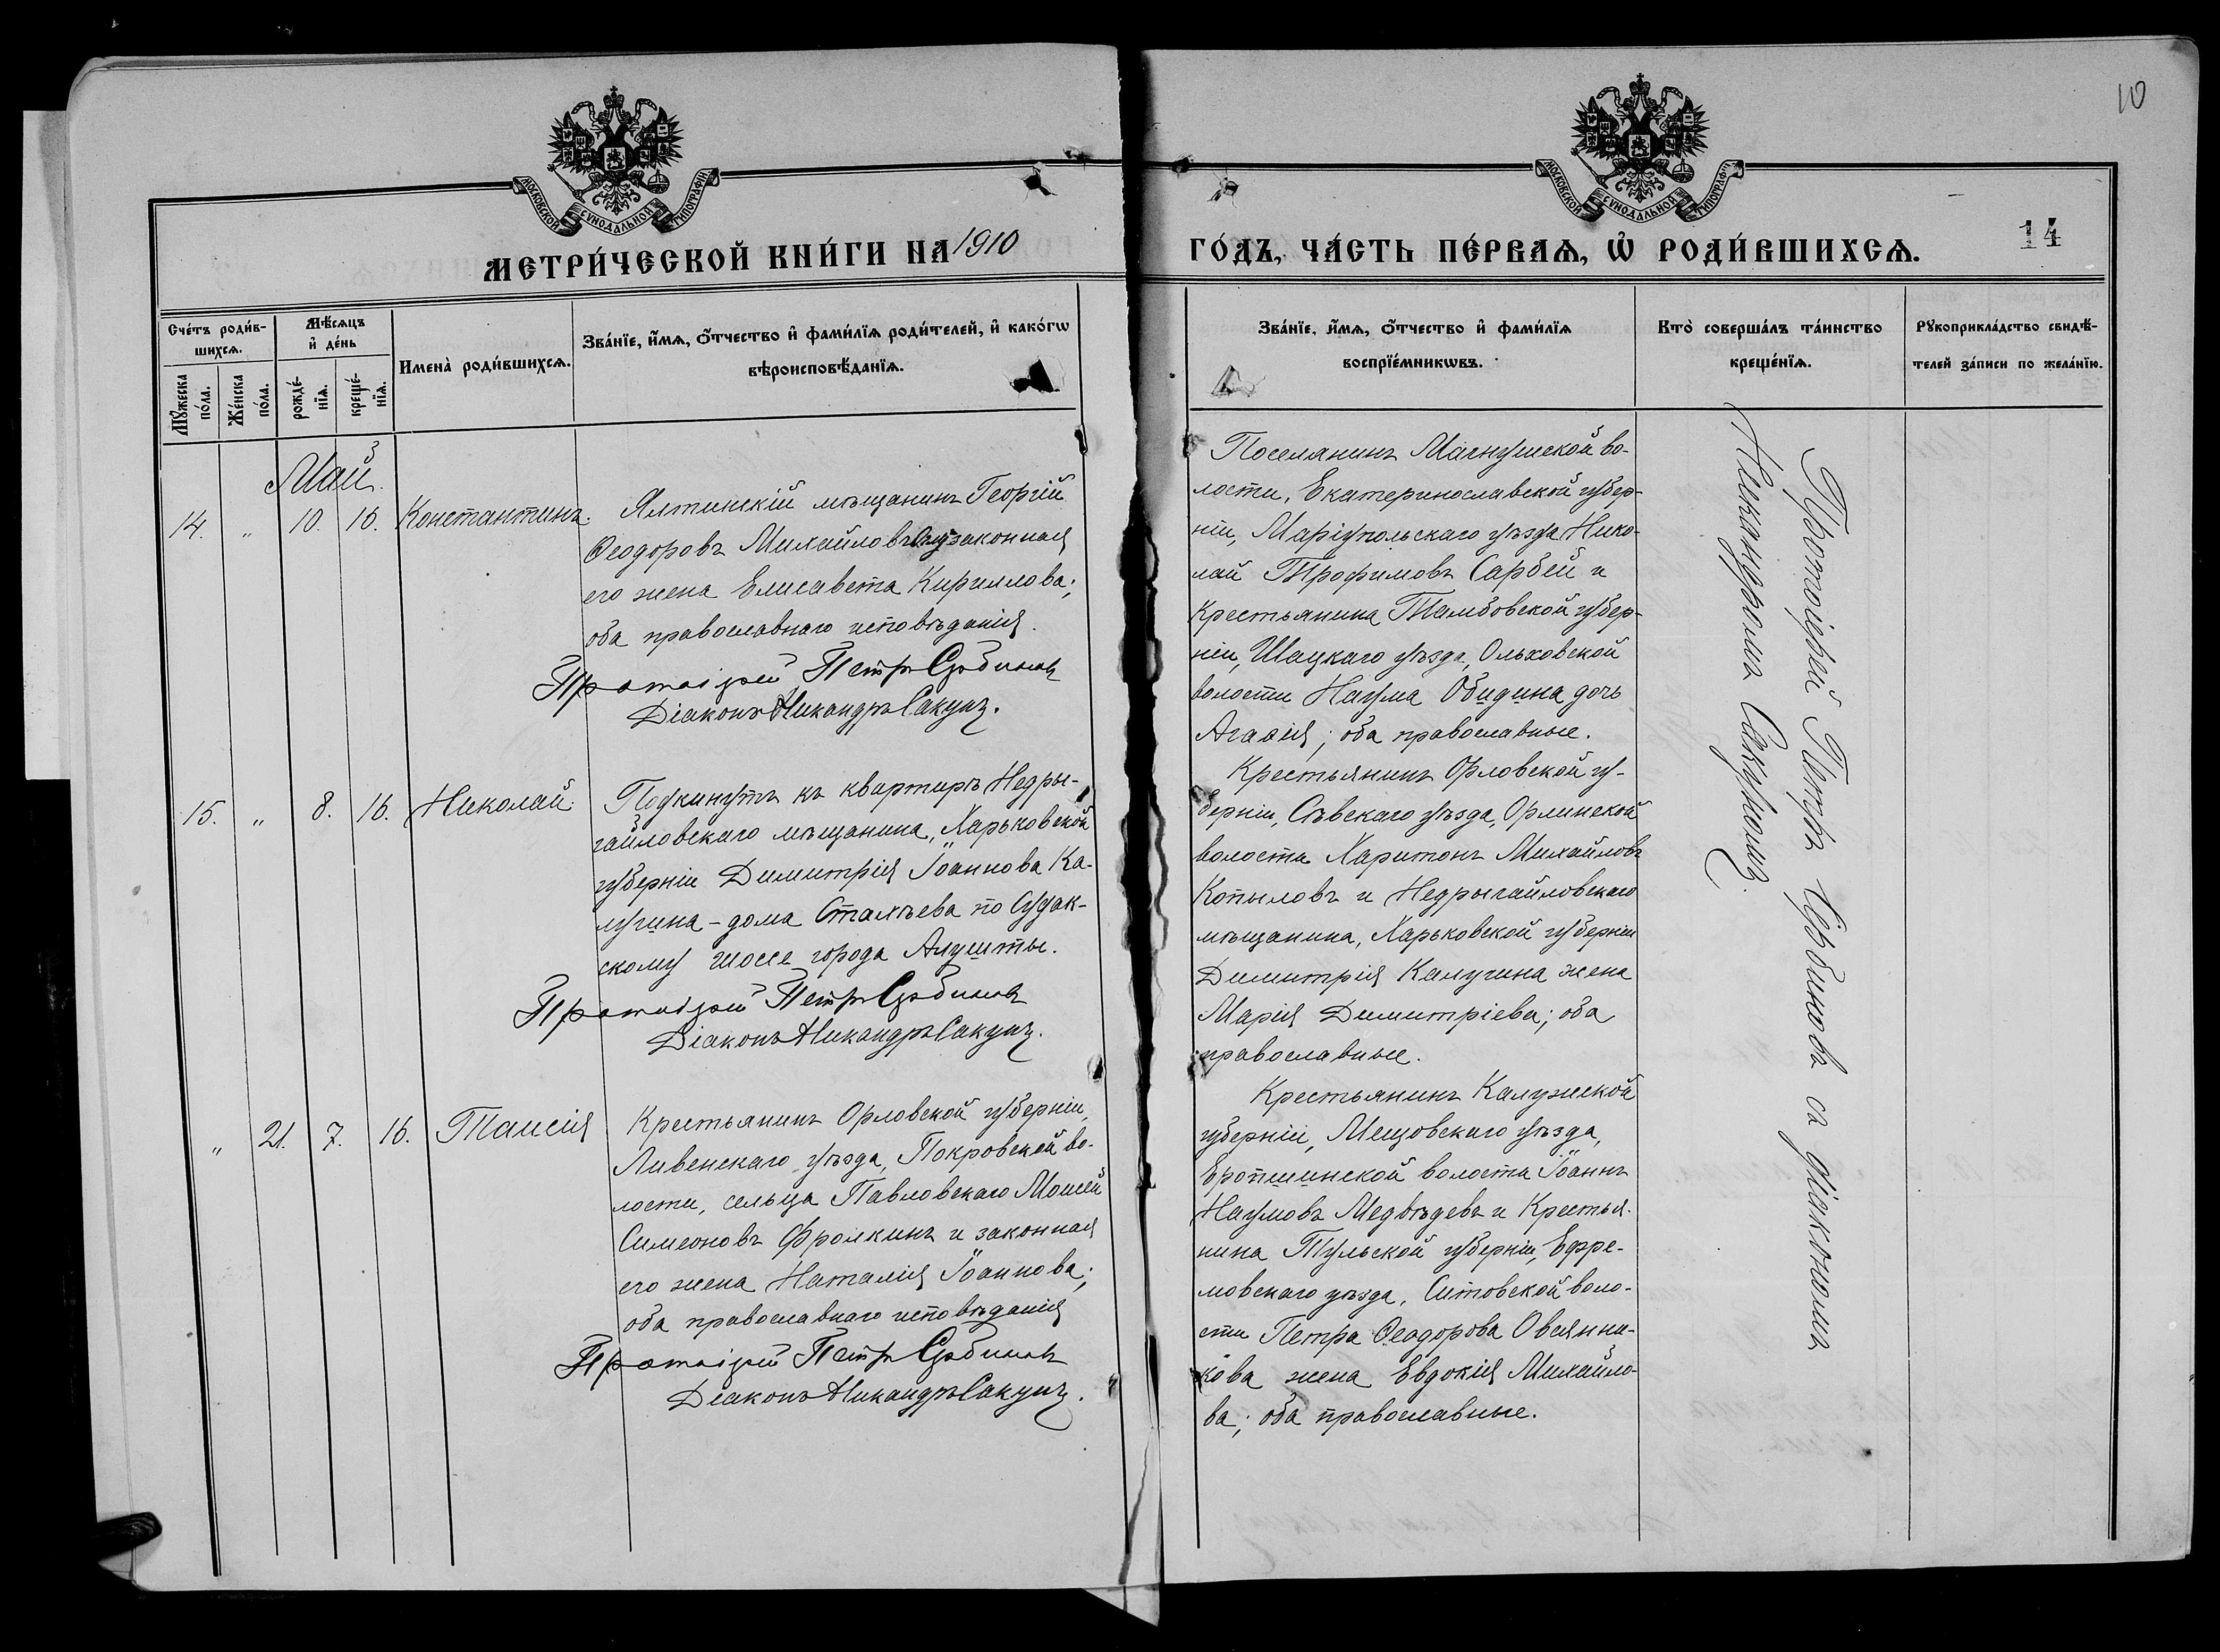 10
МОСКОВСКОЙ СУНОДАЛЬНОЙ ТИПОГРАФІИ
МОСКОВСКОЙ СУНОДАЛЬНОЙ ТИПОГРАФІИ
МЕТРИ́ЧЕСКОЙ КНИ́ГИ НА 1910
ГО́ДЪ, ЧА́СТЬ ПЕ́РВАѦ, Ѡ҆ РОДИ́ВШИХСѦ.
14
Сче́тъ роди́в-
шихсѧ.
Мꙋ́жеска по́ла.
Же́нска по́ла.
Мѣ́сѧцъ и҆ де́нь
рожде́-
нїѧ.
креще́-
нїѧ.
Имена̀ роди́вшихсѧ.
Зва́нїе, и҆́мѧ, ѻ҆́тчество и҆ фами́лїѧ роди́телей, и҆ како́гѡ
вѣроисповѣ́данїѧ.
Зва́нїе, и҆́мѧ, ѻ҆́тчество и҆ фами́лїѧ
воспрїе́мникѡвъ.
Кто̀ соверша́лъ та́инство
креще́нїѧ.
Рꙋкоприкла́дство свидѣ́-
телей за́писи по жела́нїю.
Май.
14. „ 10. 16. Константинъ.
Ялтинскій мѣщанинъ Георгій
Ѳеодоровъ Михайловъ и законная
его жена Елисавета Кириллова;
оба православнаго исповѣданія.
Протоіерей Петръ Сербиновъ
Діаконъ Никандръ Сакунъ.
Поселянинъ Мангушской во-
лости, Екатеринославской губер-
ніи, Маріупольскаго уѣзда Нико-
лай Трофимовъ Сарбей и
Крестьянина Тамбовской губер-
ніи, Шацкаго уѣзда, Ольховской
волости Наума Обидина дочь
Агаѳія; оба православные.
15. „ 8. 16. Николай.
Подкинутъ къ квартирѣ Недры-
гайловскаго мѣщанина, Харьковской
губерніи Димитрія Іоаннова Ка-
лугина - дома Стахѣева по Судак-
скому шоссе города Алушты.
Протоіерей Петръ Сербиновъ
Діаконъ Никандръ Сакунъ.
Крестьянинъ Орловской гу-
берніи, Сѣвскаго уѣзда, Орлинской
волости Харитонъ Михайловъ
Копыловъ и Недрыгайловскаго
мѣщанина, Харьковской губерніи
Димитрія Калугина жена
Марія Димитріева; оба
православные.
„ 21. 7. 16. Таисія
Крестьянинъ Орловской губерніи,
Ливенскаго уѣзда, Покровской во-
лости, сельца Павловскаго Моисей
Симеоновъ Фролкинъ и законная
его жена Наталія Іоаннова;
оба православнаго исповѣданія
Протоіерей Петръ Сербиновъ
Діаконъ Никандръ Сакунъ.
Крестьянинъ Калужской
губерніи, Мещовскаго уѣзда,
Еропшинской волости Іоаннъ
Наумовъ Медвѣдевъ и Крестья-
нина Тульской губерніи, Ефре-
мовскаго уѣзда, Ситовской воло-
сти Петра Ѳеодорова Овсянни-
кова жена Евдокія Михайло-
ва; оба православные.
Протоіерей Петръ Сербиновъ съ діакономъ
Никандромъ Сакуномъ.